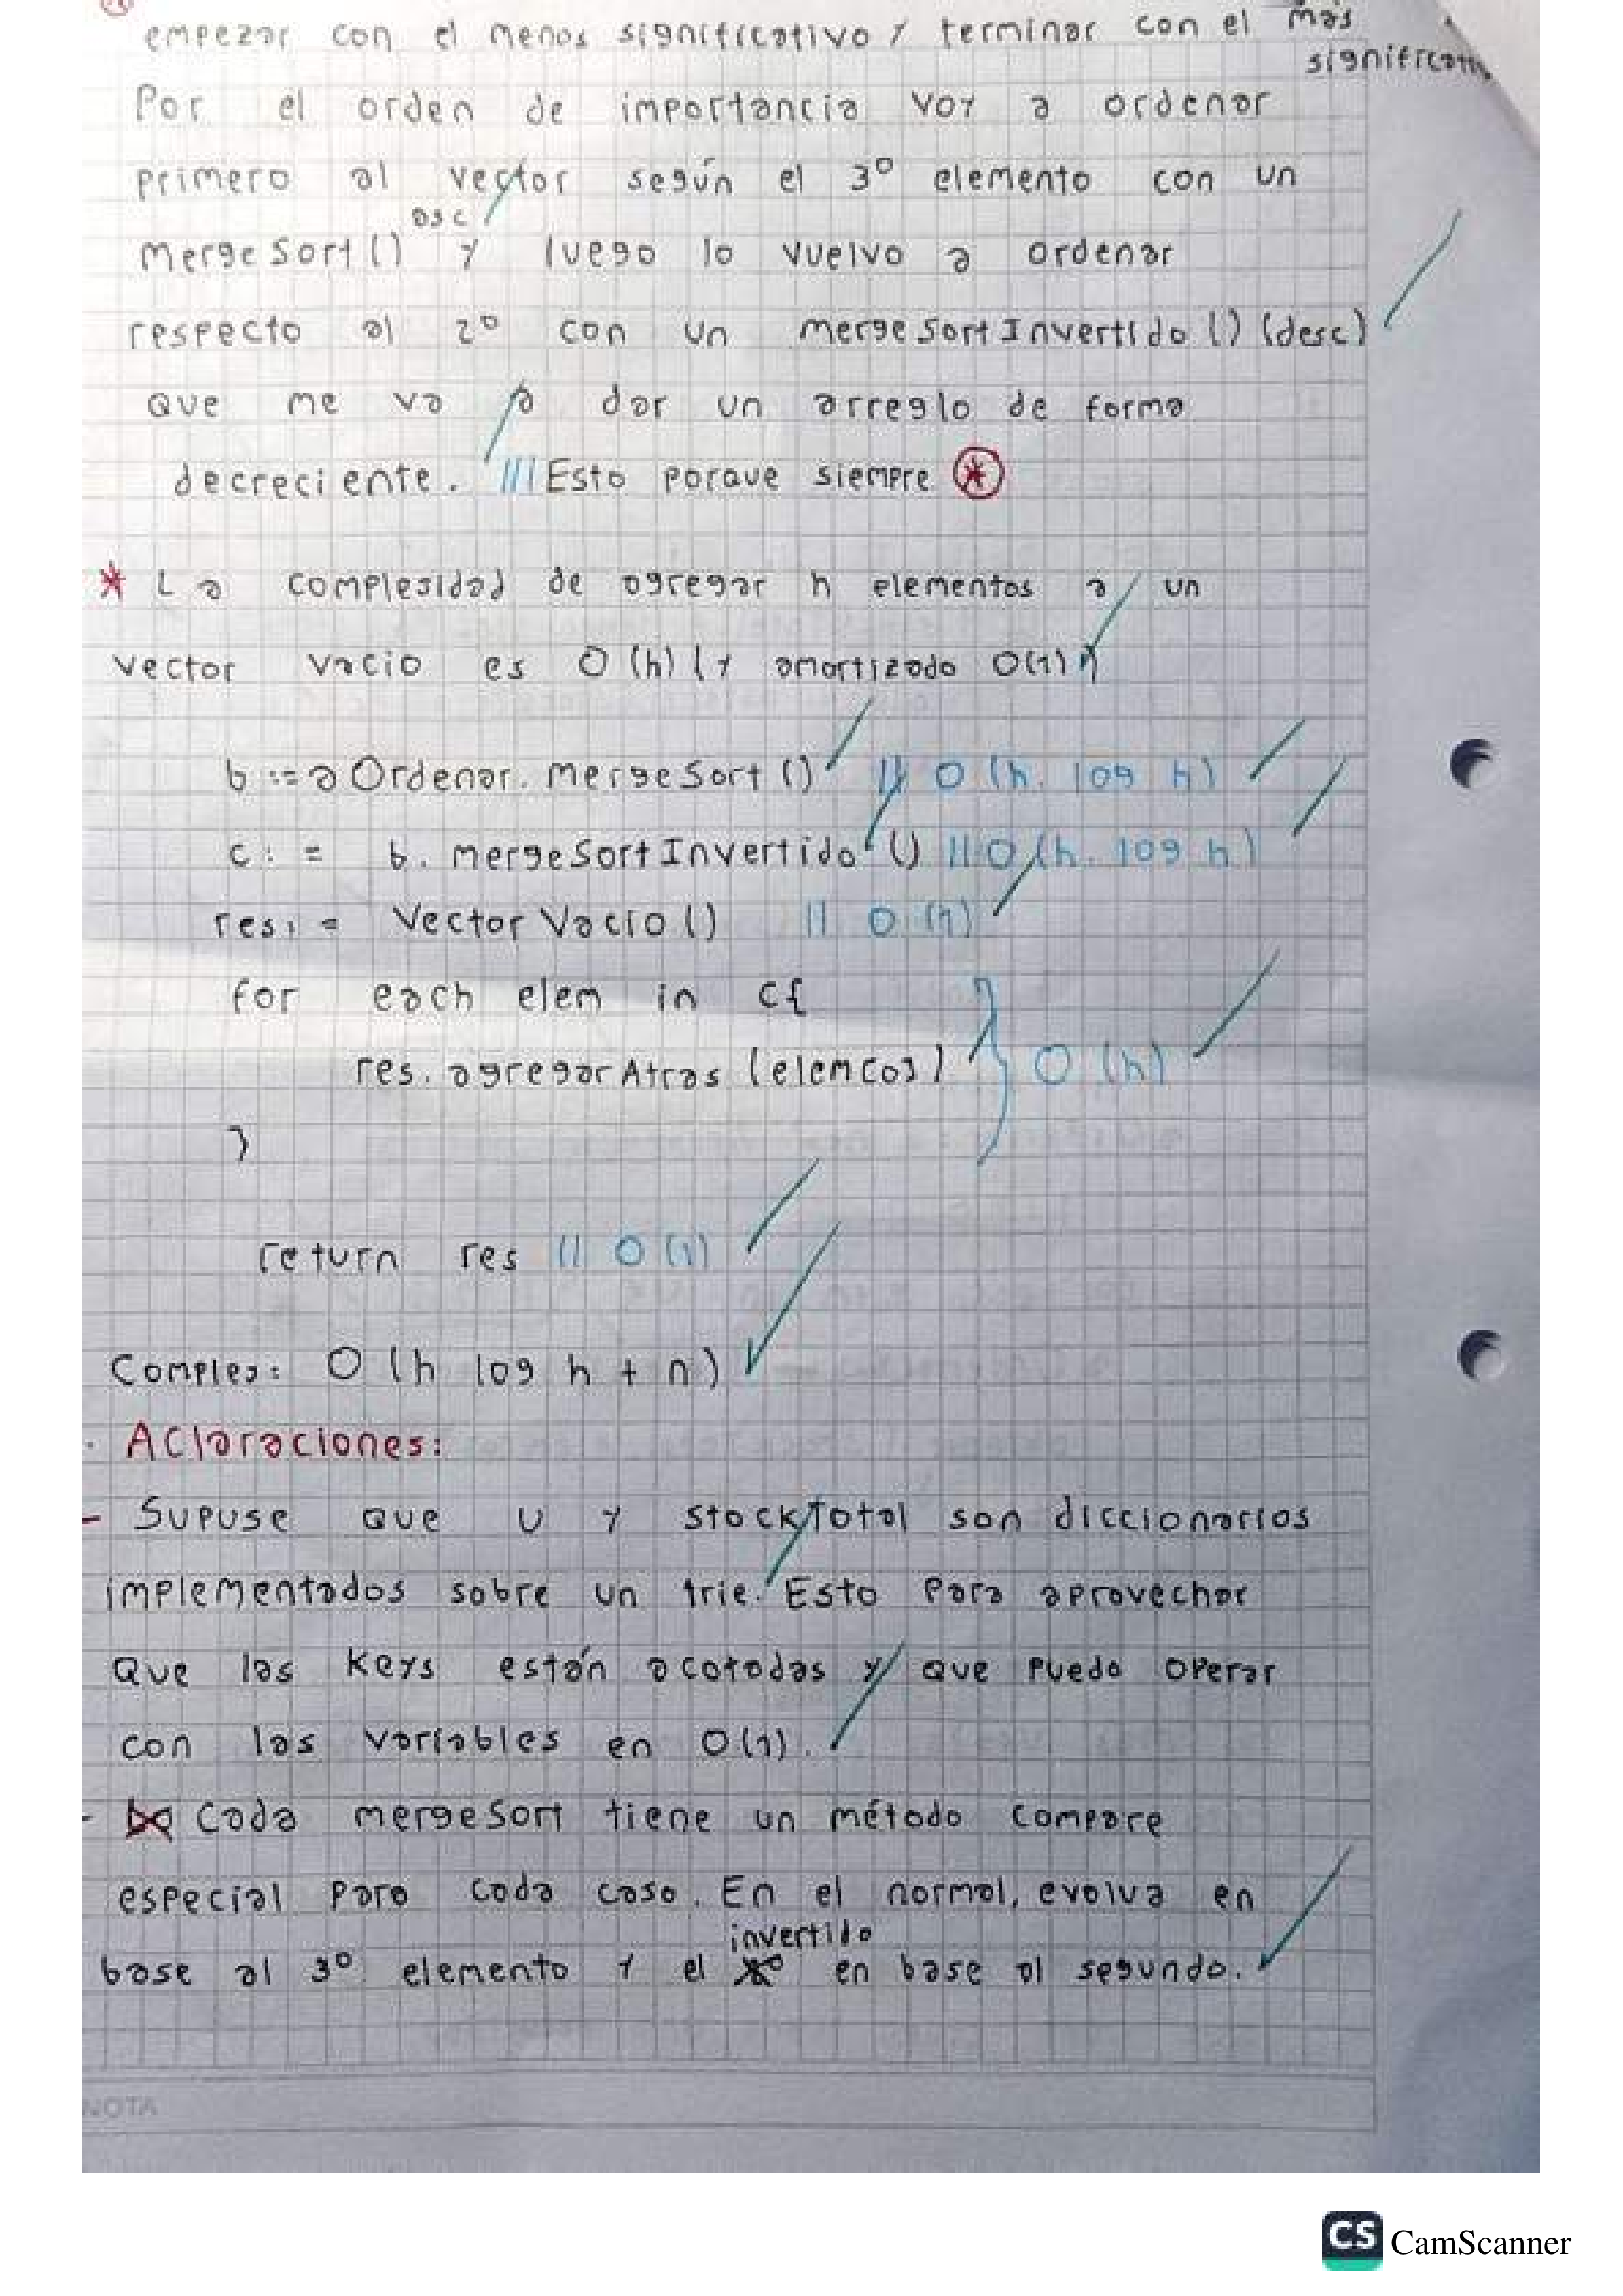 empezar con el menos significativo y terminar con el más
significativo
Por el orden de importancia voy a ordenar
primero al vector según el 3° elemento con un
asc
MergeSort() y luego lo vuelvo a ordenar
respecto al 2° con un mergeSortInvertido() (desc)
que me va a dar un arreglo de forma
decreciente. /// Esto porque siempre *
* La complejidad de agregar h elementos a un
vector vacio es O(h) (y amortizado O(1))
b := aOrdenar.mergeSort() // O(h. log h)
c := b.mergeSortInvertido() // O(h. log h)
res := VectorVacio() // O(1)
for each elem in c{
res.agregarAtras(elem[0]) } O(h)
}
return res // O(1)
Complej: O(h log h + n)
- Aclaraciones:
- Supuse que U y stockTotal son diccionarios
implementados sobre un trie. Esto para aprovechar
que las keys están acotadas y que puedo operar
con las variables en O(1).
- Cada mergeSort tiene un método compare
especial para cada caso. En el normal, evalua en
invertido
base al 3° elemento y el en base al segundo.
NOTA
CS CamScanner